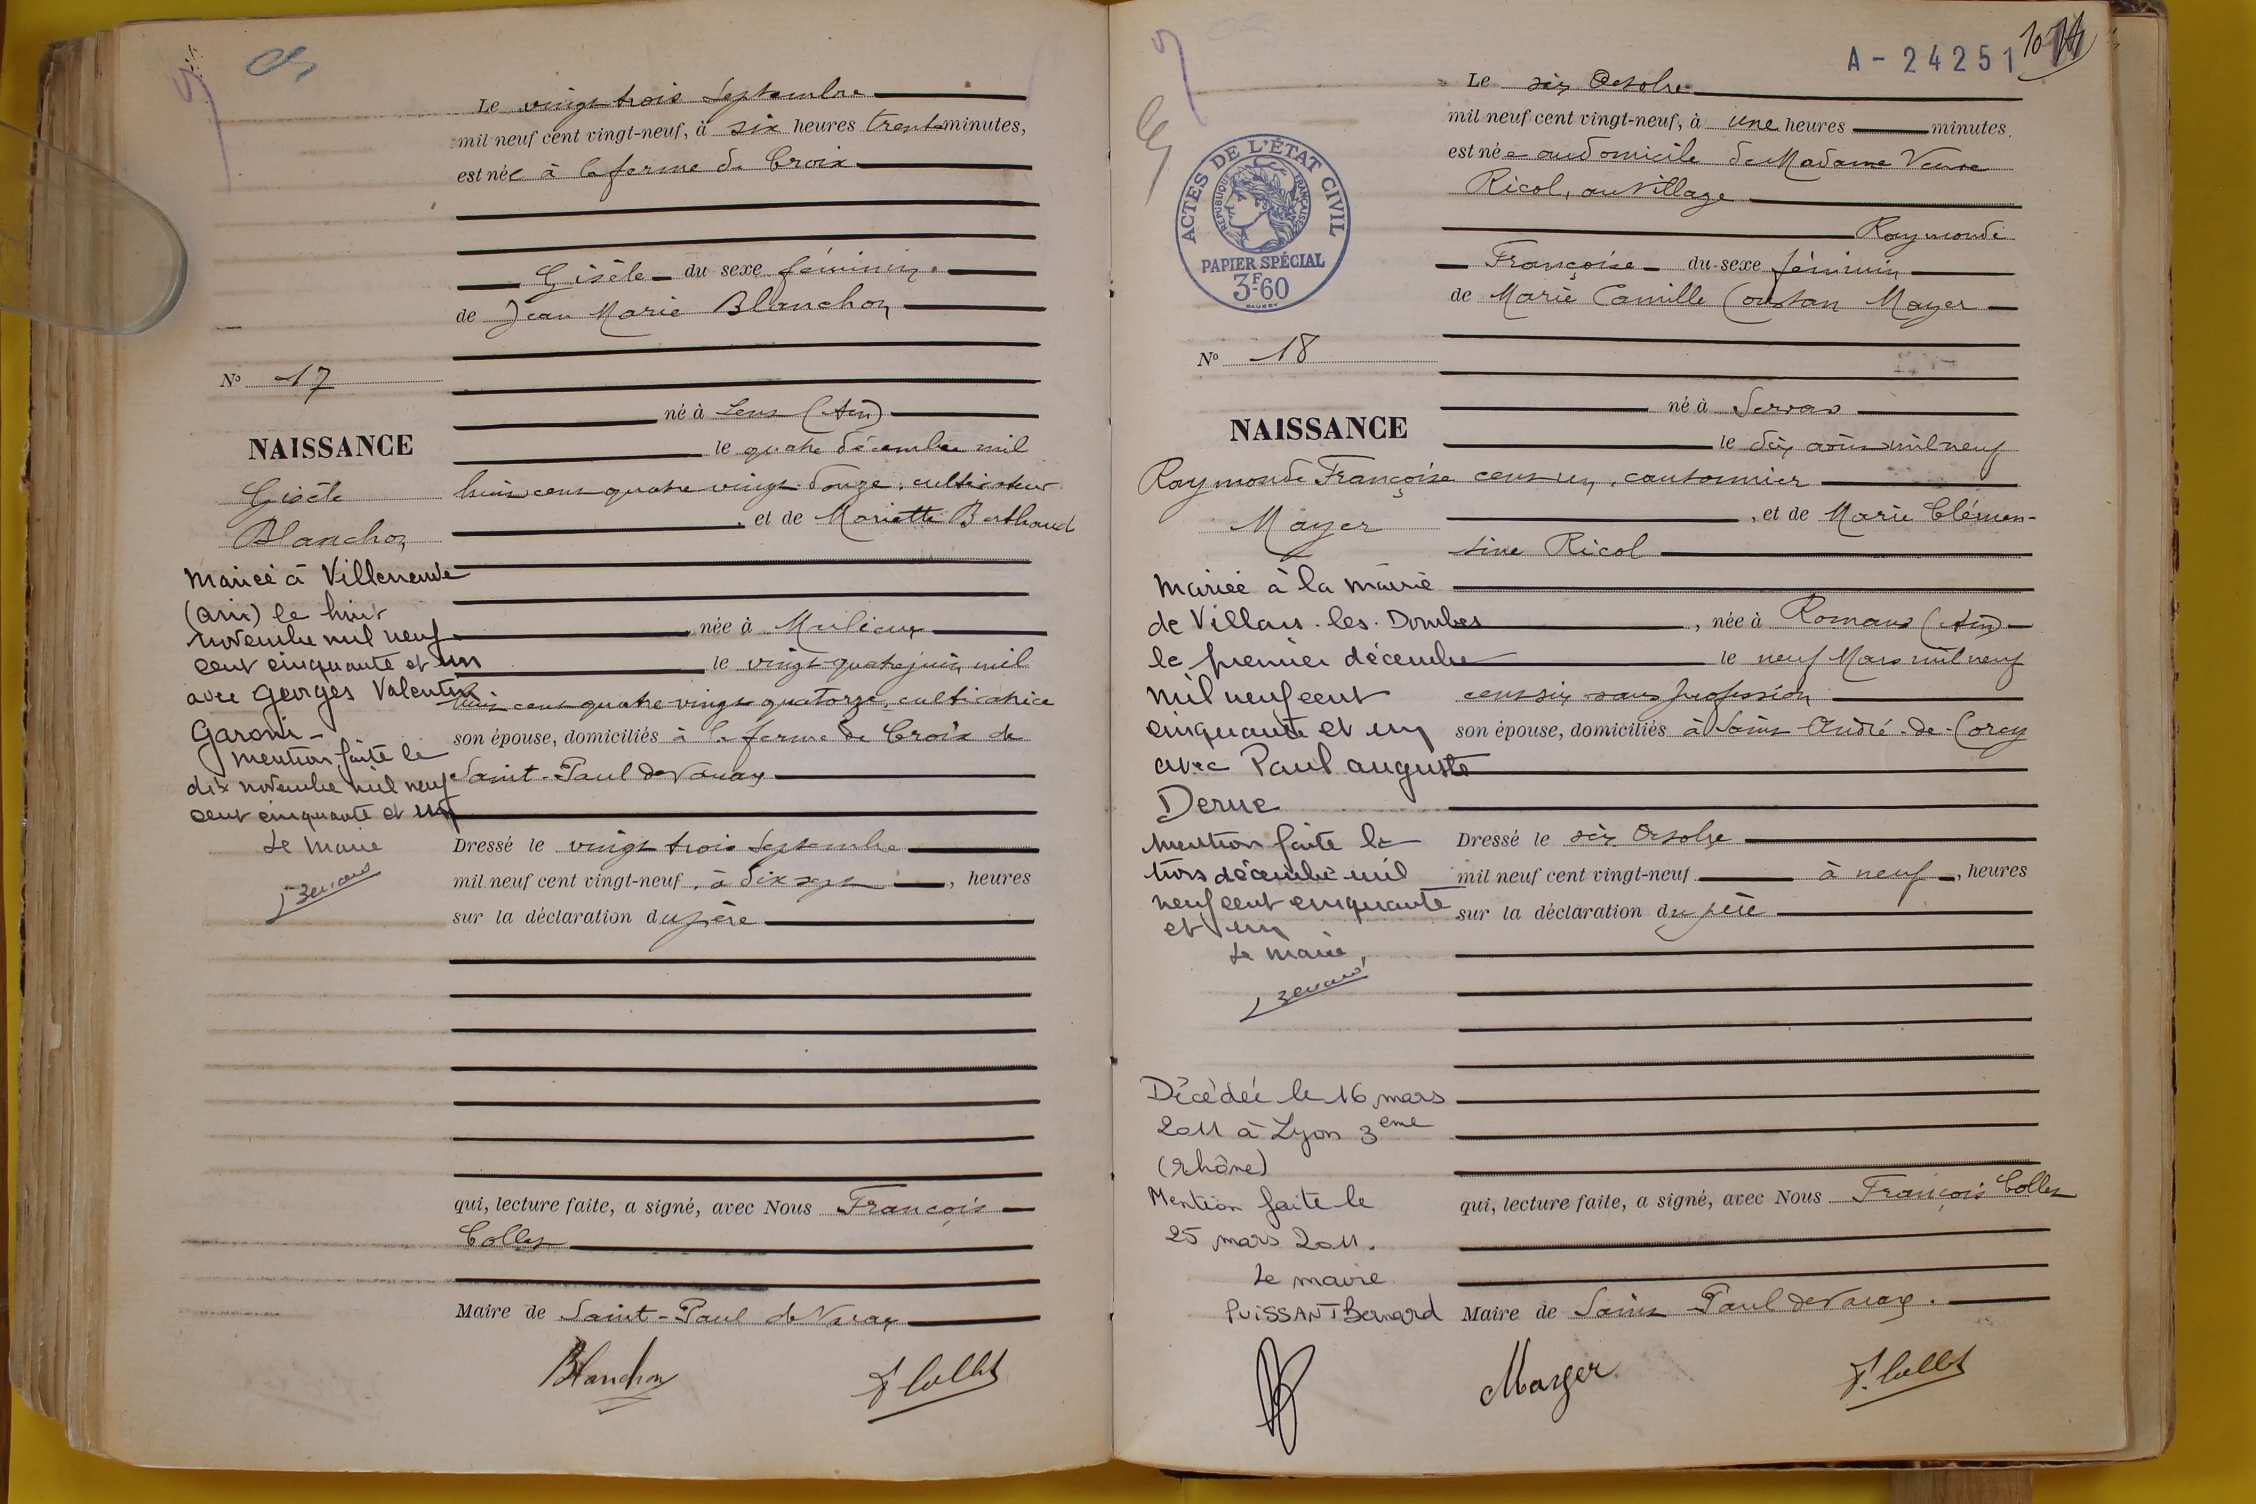 Le vingt trois Septembre
mil neuf cent vingt-neuf, à six heures trente minutes,
est née à la ferme de Croix
Gisèle du sexe féminin.
de Jean Marie Blanchon
No 17
né à (Ain)
NAISSANCE
le quatre décembre mil
Gisèle
huit cent quatre vingt douze, cultivateur
, et de Mariette Berthaud
Blanchon
Mariée à Villeneuve
(Ain) le huit
novembre mil neuf
cent cinquante et un
avec Georges Valentin
Garoni
mention faite le
dix novembre mil neuf
cent cinquante et un
Le Maire
née à Mulieux
le vingt quatre juin mil
huit cent quatre vingt quatorze, cultivatrice
son épouse, domiciliés à la ferme de Croix de
Saint-Paul de Varax
Dressé le vingt trois Septembre
mil neuf cent vingt-neuf, à dix sept, heures
sur la déclaration du père
qui, lecture faite, a signé, avec Nous François
Collet
Maire de Saint-Paul de Varax
Blanchon
F. Collet
A-24251
10
Le six Octobre
mil neuf cent vingt-neuf, à une heures minutes.
est née au domicile de Madame Veuve
Ricol, au village
Raymonde
Françoise du sexe féminin
de Marie Camille Constan Mayer
ACTES DE L'ÉTAT CIVIL
RÉPUBLIQUE FRANÇAISE
PAPIER SPÉCIAL
3F60
No 18
né à Servas
NAISSANCE
le dix août mil neuf
Raymonde Françoise
cent un, cantonnier
Mayer
, et de Marie Clémen-
tine Ricol
, née à Romans (Ain)
le neuf Mars mil neuf
cent six sans profession
son épouse, domiciliés à Saint André-de-Corcy
Mariée à la mairie
de Villars-les-Dombes
le premier décembre
mil neuf cent
cinquante et un
avec Paul Auguste
Derue
Mention faite le
trois décembre mil
neuf cent cinquante
et un
Le Maire,
Dressé le six Octobre
mil neuf cent vingt-neuf à neuf, heures
sur la déclaration du père
Décédée le 16 mars
2011 à Lyon 3ème
(Rhône)
Mention faite le
25 mars 2011.
Le maire
PUISSANT Bernard
qui, lecture faite, a signé, avec Nous François Collet
Maire de Saint Paul de Varax.
Mayer
F. Collet